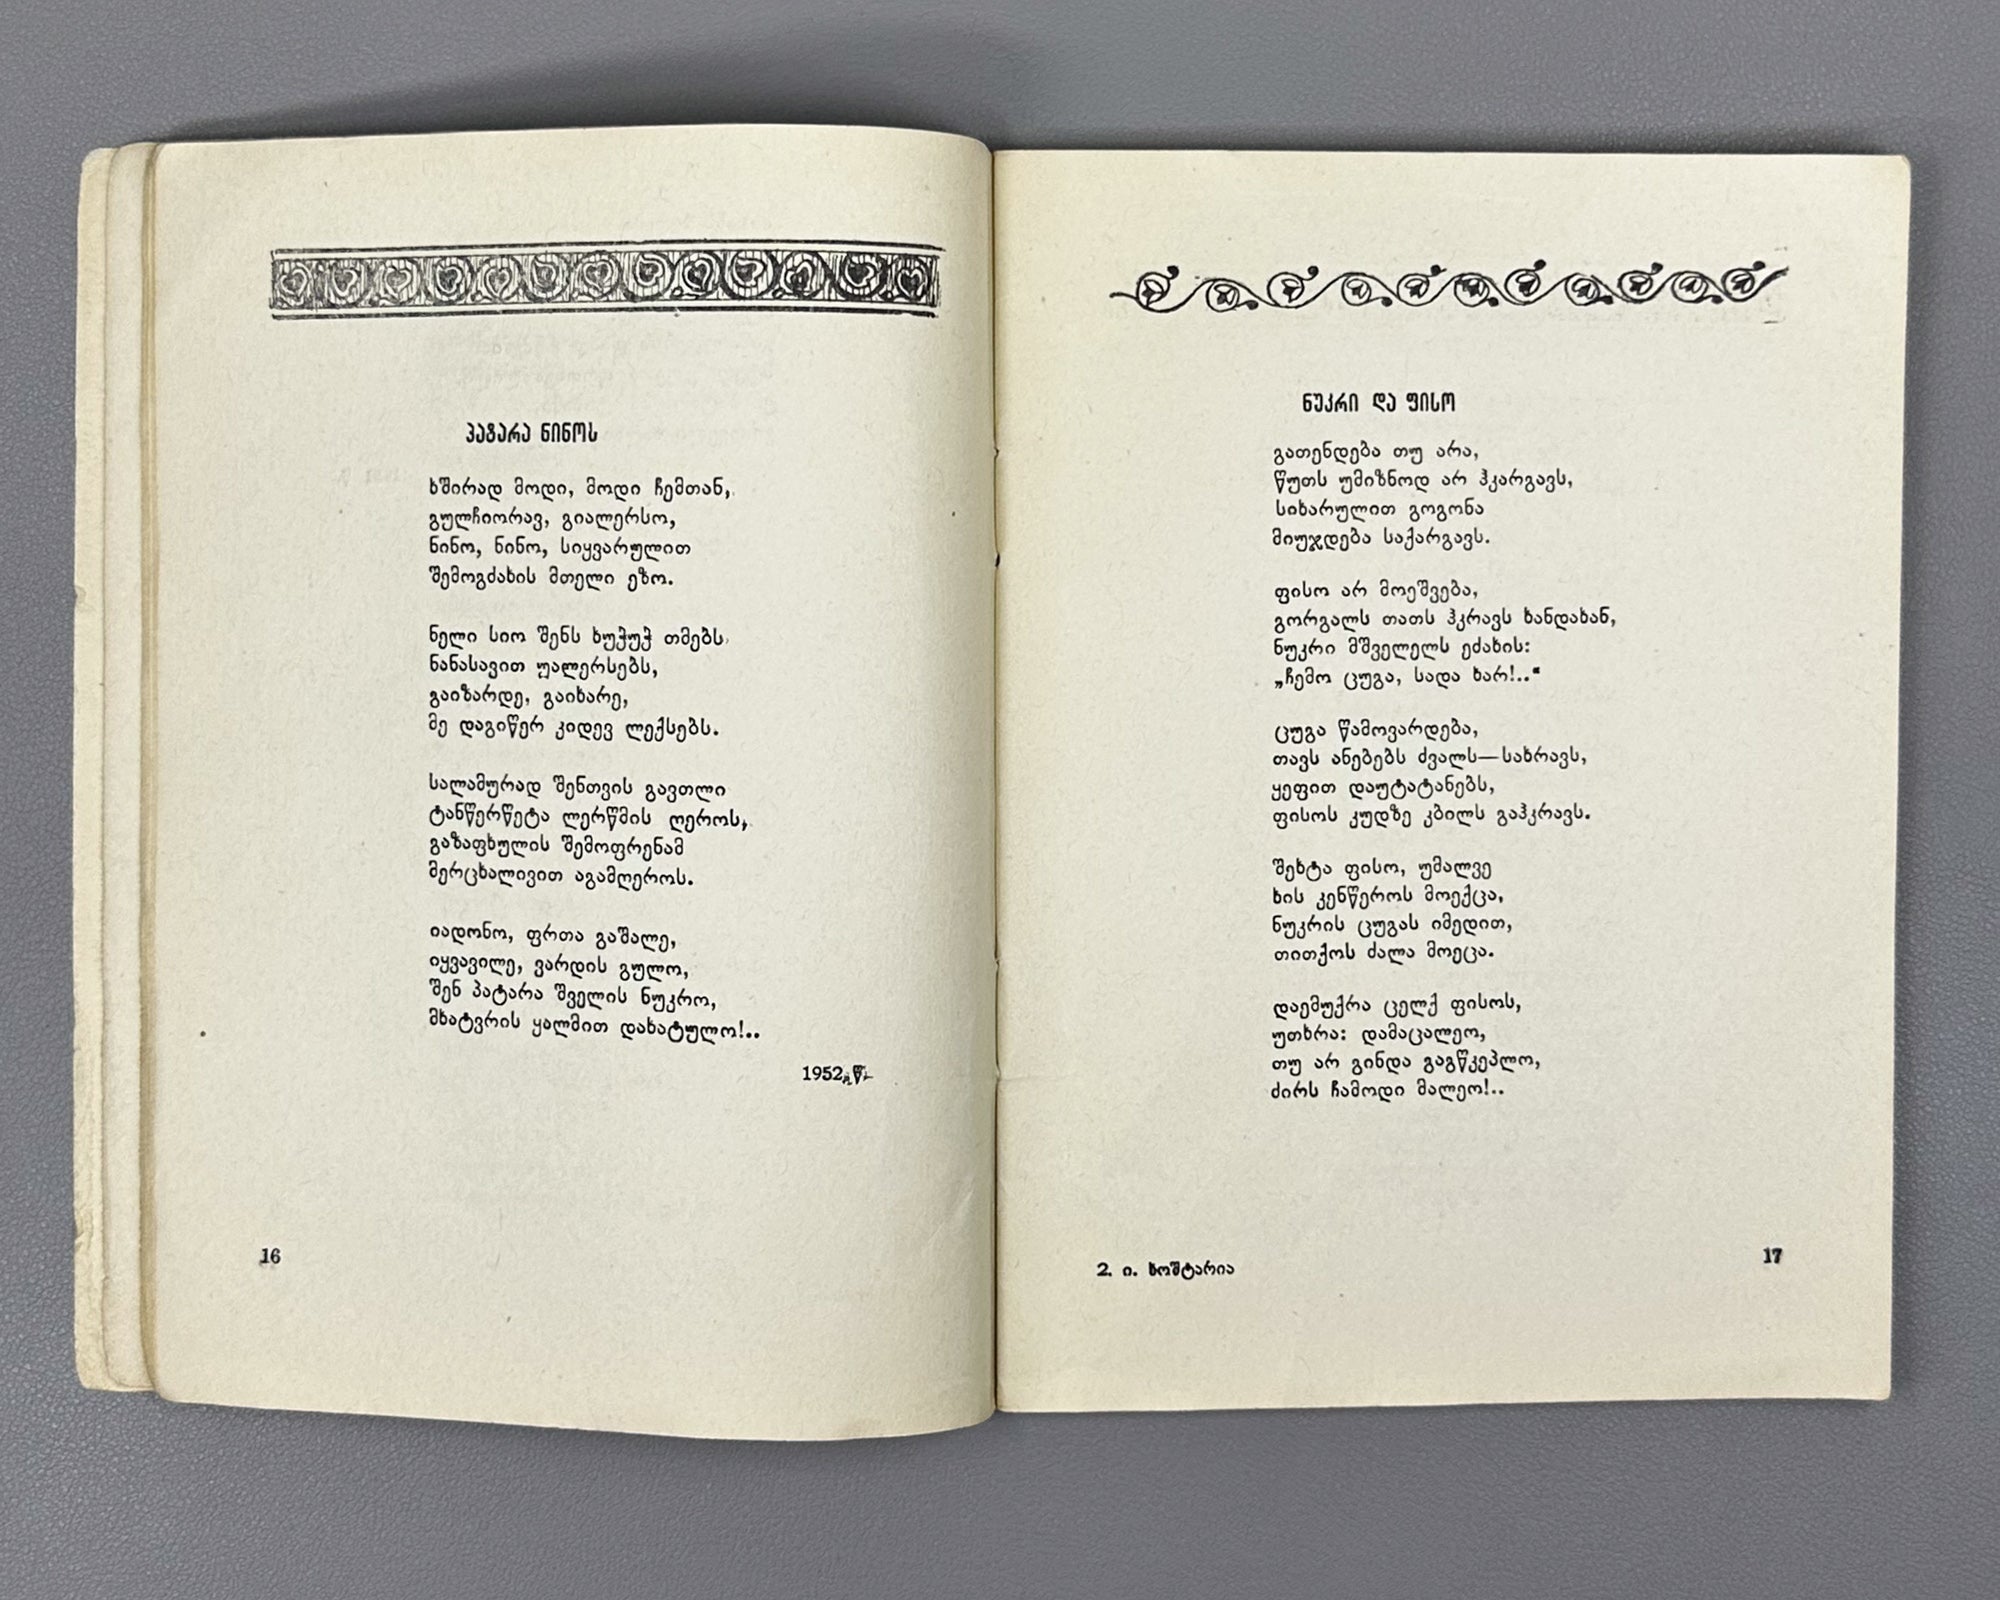 პატარა ნინოს
ხშირად მოდი, მოდი ჩემთან,
გულჩიორავ, გიალერსო,
ნინო, ნინო, სიყვარულით
შემოგძახის მთელი ეზო.
ნელი სიო შენს ხუჭუჭ თმებს
ნანასავით უალერსებს,
გაიზარდე, გაიხარე,
მე დაგიწერ კიდევ ლექსებს.
სალამურად შენთვის გავთლი
ტანწერწეტა ლერწმის ღეროს,
გაზაფხულის შემოფრენამ
მერცხალივით აგამღეროს.
იადონო, ფრთა გაშალე,
იყვავილე, ვარდის გულო,
შენ პატარა შველის ნუკრო,
მხატვრის ყალმით დახატულო!..
1952 წ.
16
ნუკრი და ფისო
გათენდება თუ არა,
წუთს უმიზნოდ არ ჰკარგავს,
სიხარულით გოგონა
მიუჯდება საქარგავს.
ფისო არ მოეშვება,
გორგალს თათს ჰკრავს ხანდახან,
ნუკრი მშველელს ეძახის:
„ჩემო ცუგა, სადა ხარ!..“
ცუგა წამოვარდება,
თავს ანებებს ძვალს—სახრავს,
ყეფით დაუტატანებს,
ფისოს კუდზე კბილს გაჰკრავს.
შეხტა ფისო, უმალვე
ხის კენწეროს მოექცა,
ნუკრის ცუგას იმედით,
თითქოს ძალა მოეცა.
დაემუქრა ცელქ ფისოს,
უთხრა: დამაცალეო,
თუ არ გინდა გაგწკეპლო,
ძირს ჩამოდი მალეო!..
2. ი. ხოშტარია
17